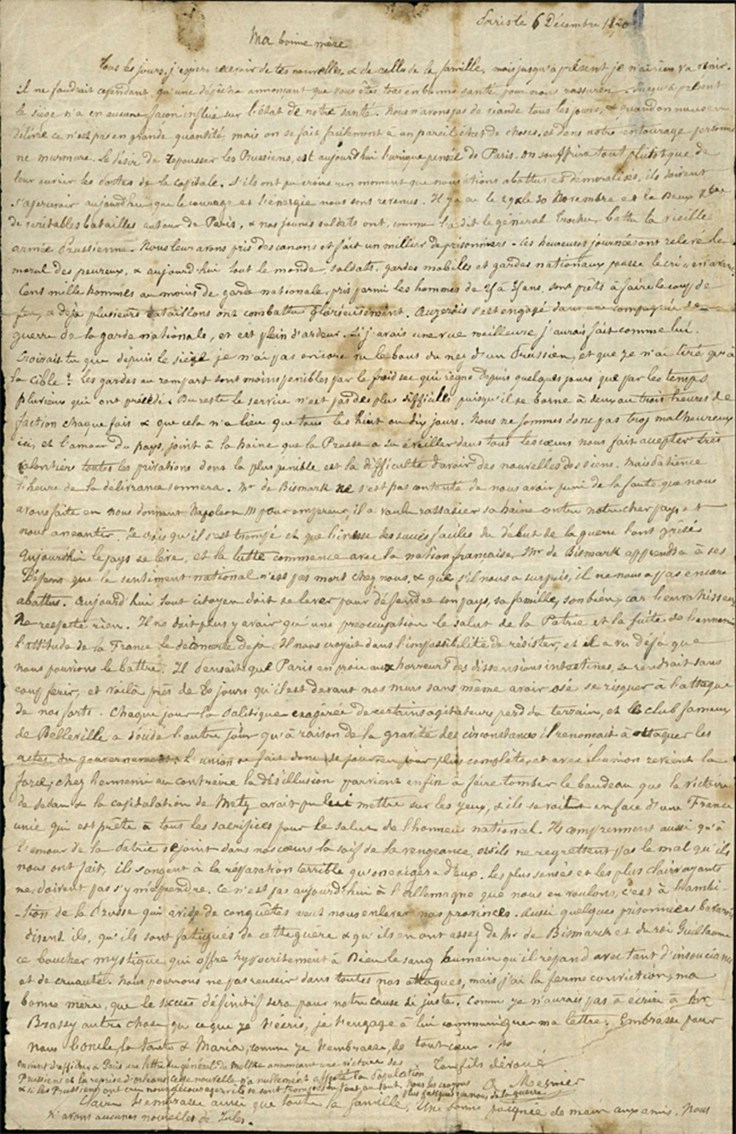 Paris le 6 Décembre 1870
Ma bonne mère
Tous les jours j'espère recevoir de tes nouvelles & de celles de la famille, mais jusqu'à présent je n'ai rien vu venir.
il ne faudrait cependant qu'une dépêche annonçant que vous êtes tous en bonne santé pour nous rassurer. Jusqu'à présent
le siège n'a en aucune façon influé sur l'état de notre santé. Nous n'avons pas de viande tous les jours, & quand on nous en
délivre ce n'est pas en grande quantité, mais on se fait facilement à un pareil état de choses, et dans notre entourage personne
ne murmure. Le désir de repousser les Prussiens, est aujourd'hui l'unique pensée de Paris. on souffrira tout plutôt que de
leur ouvrir les portes de la capitale. S'ils ont pu croire un moment que nous étions abattus et démoralisés, ils doivent
s'apercevoir aujourd'hui que le courage et l'énergie nous sont revenus. Il y a eu le 29 & le 30 Novembre et le Deux Xbre
de véritables batailles autour de Paris, & nos jeunes soldats ont, comme l'a dit le général Trochu, battu la vieille
armée Prussienne. Nous leur avons pris des canons et fait un millier de prisonniers. Ces heureuses journées ont relevé le
moral des peureux, & aujourd'hui tout le monde, soldats, gardes mobiles et gardes nationaux pousse le cri: en avant
Cent mille hommes au moins de garde nationale, pris parmi les hommes de 25 à 35 ans, sont prêts à faire le coup de
feu, & déjà plusieurs bataillons ont combattu glorieusement. s'est engagé dans une compagnie de
guerre de la garde nationale, et est plein d'ardeur. Si j'avais une vue meilleure j'aurais fait comme lui.
Croirais tu que depuis le siège je n'ai pas encore vu le bout du nez d'un Prussien, et que je n'ai tiré qu'à
la cible? Les gardes au rempart sont moins pénibles par le froid sec qui règne depuis quelques jours que par les temps
pluvieux qui ont précédé. Du reste le service n'est pas des plus difficiles puisqu'il se borne à deux ou trois heures de
faction chaque fois & que cela n'a lieu que tous les huit ou dix jours. Nous ne sommes donc pas trop malheureux
ici, et l'amour du pays, joint à la haine que la Prusse a su éveiller dans tous les cœurs nous fait accepter très
volontiers toutes les privations dont la plus pénible est la difficulté d'avoir des nouvelles des siens. Mais patience
l'heure de la délivrance sonnera. Mr de Bismark ne s'est pas contenté de nous avoir puni de la faute que nous
avons faite en nous donnant Napoléon III pour empereur, il a voulu rassasier sa haine contre notre cher pays et
nous anéantir. Je crois qu'il s'est trompé et que l'ivresse des succès faciles du début de la guerre l'ont grisé.
Aujourd'hui le pays se lève, et la lutte commence avec la nation française. Mr de Bismark apprendra à ses
dépens que le sentiment national n'est pas mort chez nous, & que s'il nous a surpris, il ne nous a pas encore
abattus. Aujourd'hui tout citoyen doit se lever pour défendre son pays, sa famille, son bien, car l'envahisseur
ne respecte rien. Il ne doit plus y avoir qu'une préoccupation le salut de la Patrie et la fuite de l'ennemi
l'attitude de la France le déconcerte déjà. Il nous croyait dans l'impossibilité de résister, et il a vu déjà que
nous pouvions le battre. Il pensait que Paris en proie aux horreurs des dissensions intestines, se rendrait sans
coup férir, et voilà près de 80 jours qu'il est devant nos murs sans même avoir osé se risquer à l'attaque
de nos forts. Chaque jour la politique exagérée de certains agitateurs perd du terrain, et le club fameux
de Belleville a décidé l'autre jour qu'à raison de la gravité des circonstances il renonçait à attaquer les
actes du gouvernement. L'union se fait donc de jour en jour plus complète, et avec l'union revient la
force, chez l'ennemi au contraire la désillusion parvient enfin à faire tomber le bandeau que la victoire
de Sedan & la capitulation de Metz avait pu lui mettre sur les yeux, & ils se voient en face d'une France
unie qui est prête à tous les sacrifices pour le salut de l'honneur national. Ils comprennent aussi qu'à
l'amour de la patrie se joint dans nos cœurs la soif de la vengeance, et s'ils ne regrettent pas le mal qu'ils
nous ont fait, ils songent à la réparation terrible qu'on exigera d'eux. Les plus sensés et les plus clairvoyants
ne doivent pas s'y méprendre. Ce n'est pas aujourd'hui à l'Allemagne que nous en voulons, c'est à l'ambi-
-tion de la Prusse qui avide de conquêtes veut nous enlever nos provinces. Aussi quelques prisonniers
disent ils, qu'ils sont fatigués de cette guerre & qu'ils en ont assez de Mr de Bismark et du roi Guillaume
ce boucher mystique qui offre hypocritement à Dieu le sang humain qu'il répand avec tant d'insouciance
et de cruauté. Nous pouvons ne pas réussir dans toutes nos attaques, mais j'ai la ferme conviction, ma
bonne mère, que le succès définitif sera pour notre cause si juste. Comme je n'aurais pas à écrire à Mr
Brassy autre chose que ce que je t'écris, je t'engage à lui communiquer ma lettre. Embrasse pour
nous l'oncle, la tante & Maria, comme je t'embrasse, de tout cœur.
Ton fils dévoué
On vient d'afficher à Paris une lettre du général de Moltke annonçant une victoire des
Prussiens et la reprise d'Orléans. Cette nouvelle n'a nullement affecté la population
& si les Prussiens ont cru nous décourager ils se sont trompés tout au tout. Nous ne croyons
plus que jamais à la guerre.
Mesnier
t'embrasse ainsi que toute la famille. Une bonne poignée de main aux amis. Nous
n'avons aucunes nouvelles de Jules.